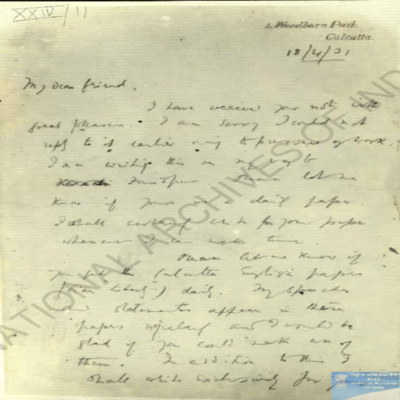 XXIV/11
1, Woodburn Park
Calcutta.
18/4/31
My dear friend,
I have received your note with
great pleasure. I am sorry I could not
reply to it earlier owing to pressure of work.
I am writing this on my way to
Please let me
know if yours is a daily paper
I shall certainly write for your paper
whenever I can make time.
Please let me know if
you get the Calcutta English papers
daily. My speeches
and statements appear in these
papers regularly and I would be
glad if you could make use of
them. In addition to this I
shall write exclusively for your
NATIONAL ARCHIVES OF IND